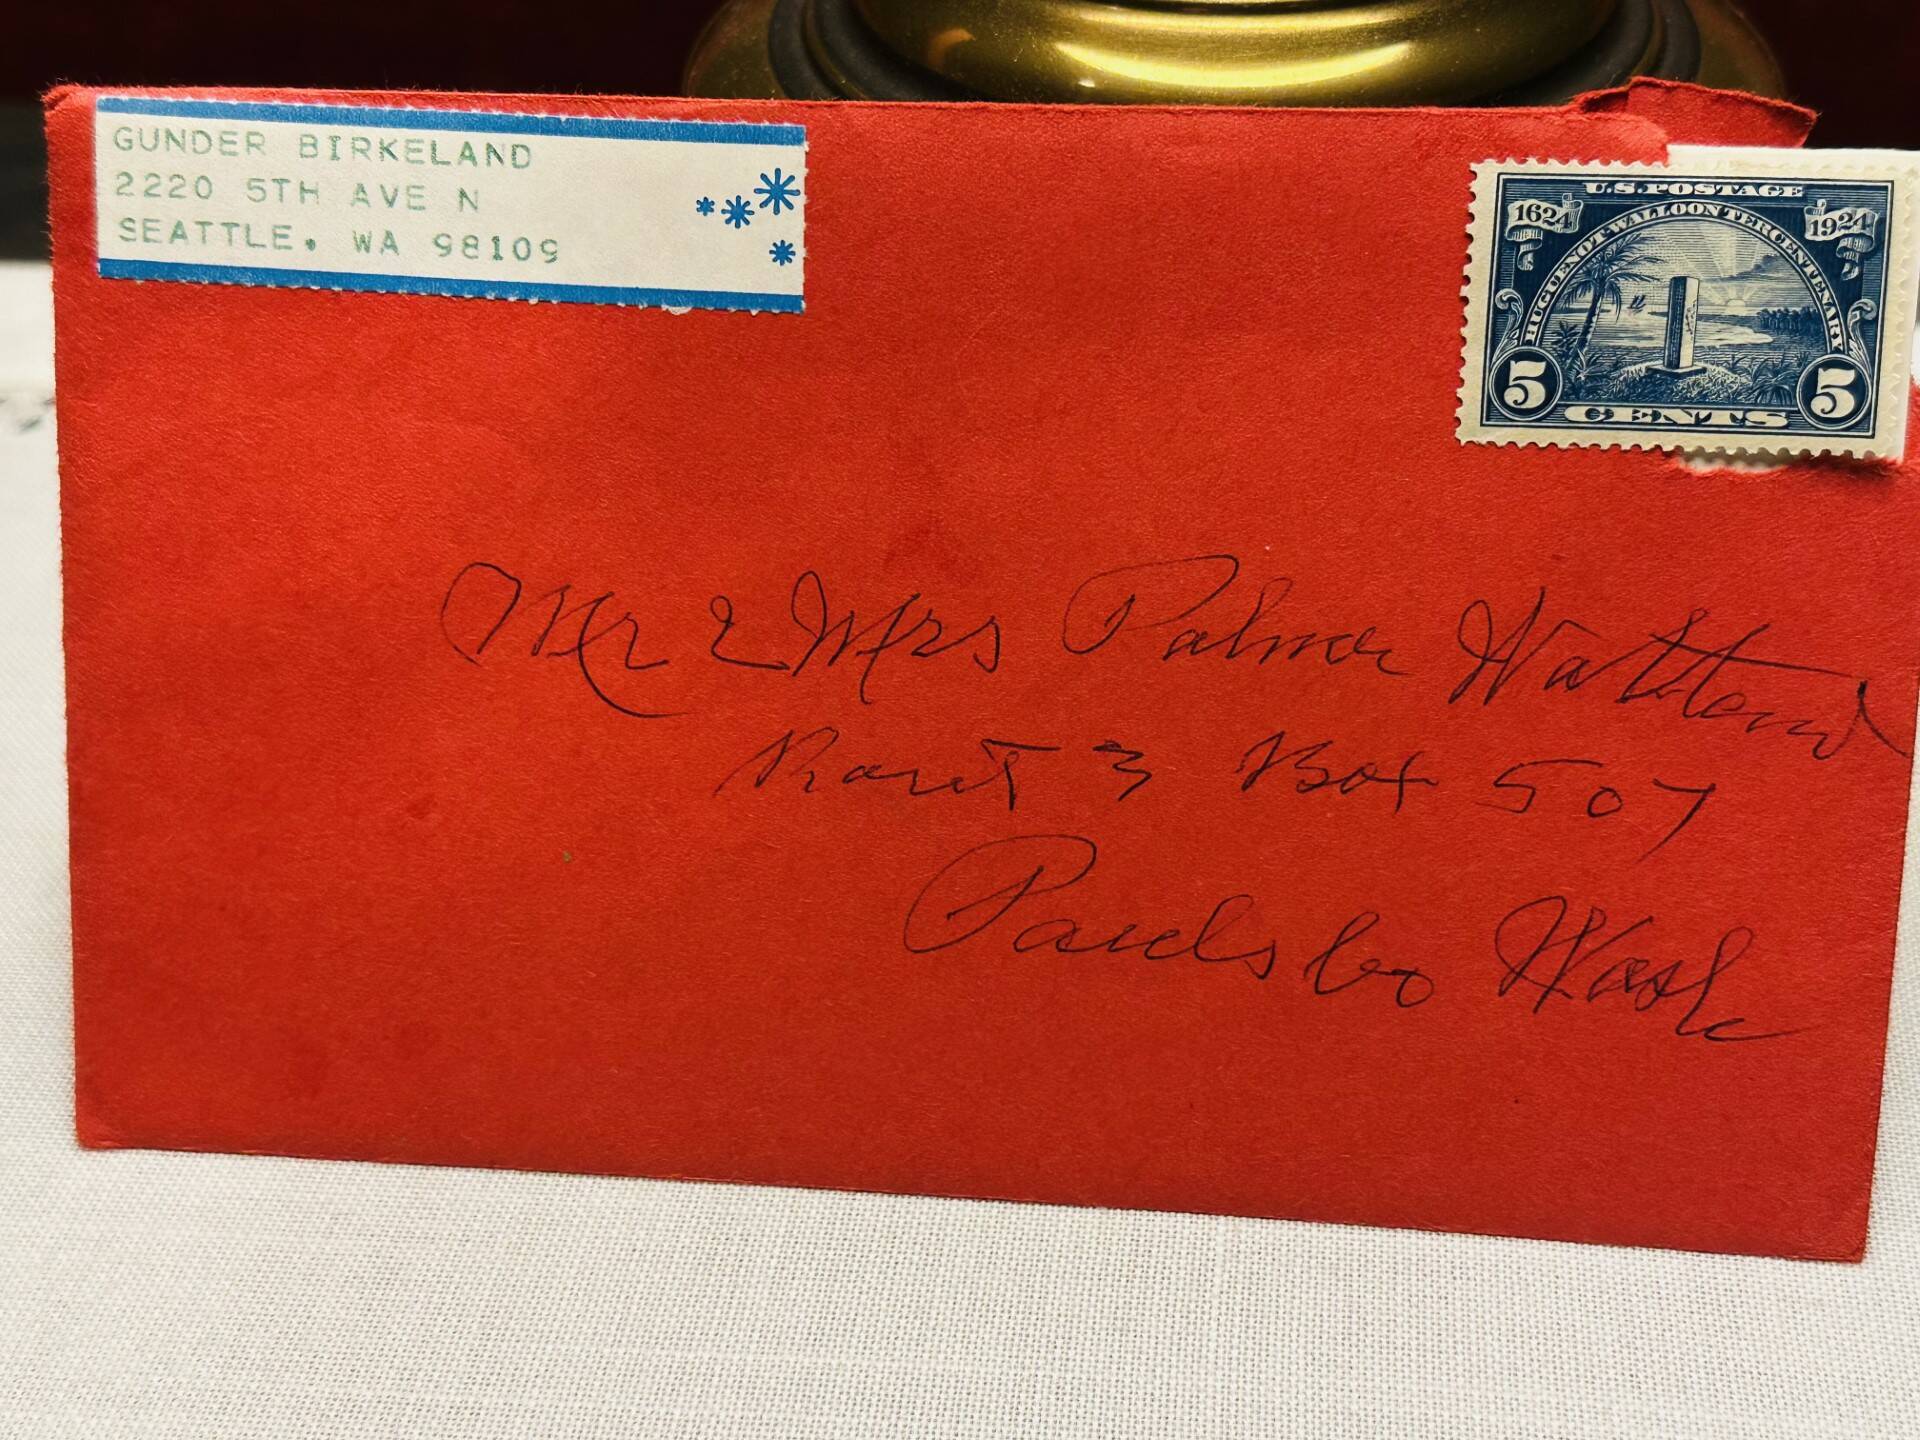 GUNDER BIRKELAND
2220 5TH AVE N
SEATTLE, WA 98109
U.S. POSTAGE
1624 1924
HUGUENOT-WALLOON TERCENTENARY
5 5
CENTS
Mr & Mrs Palmer
Rout 3 Box 507
Paulsbo Wash